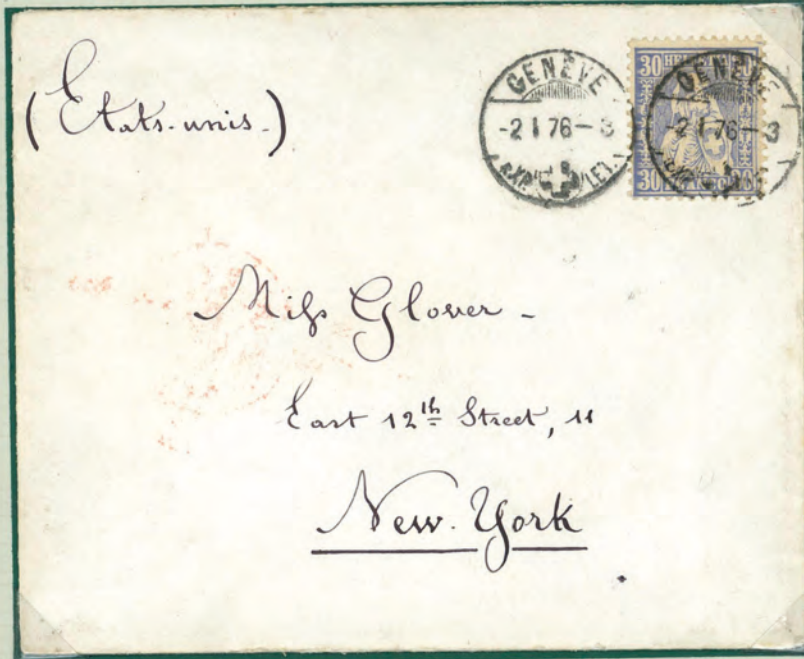 (Etats-unis-)
GENÈVE
-2 I 76-3
EXP. LET.
30 HEL
GENÈVE
-2 I 76-3
30
Miss Glover -
East 12th Street, 11
New-York